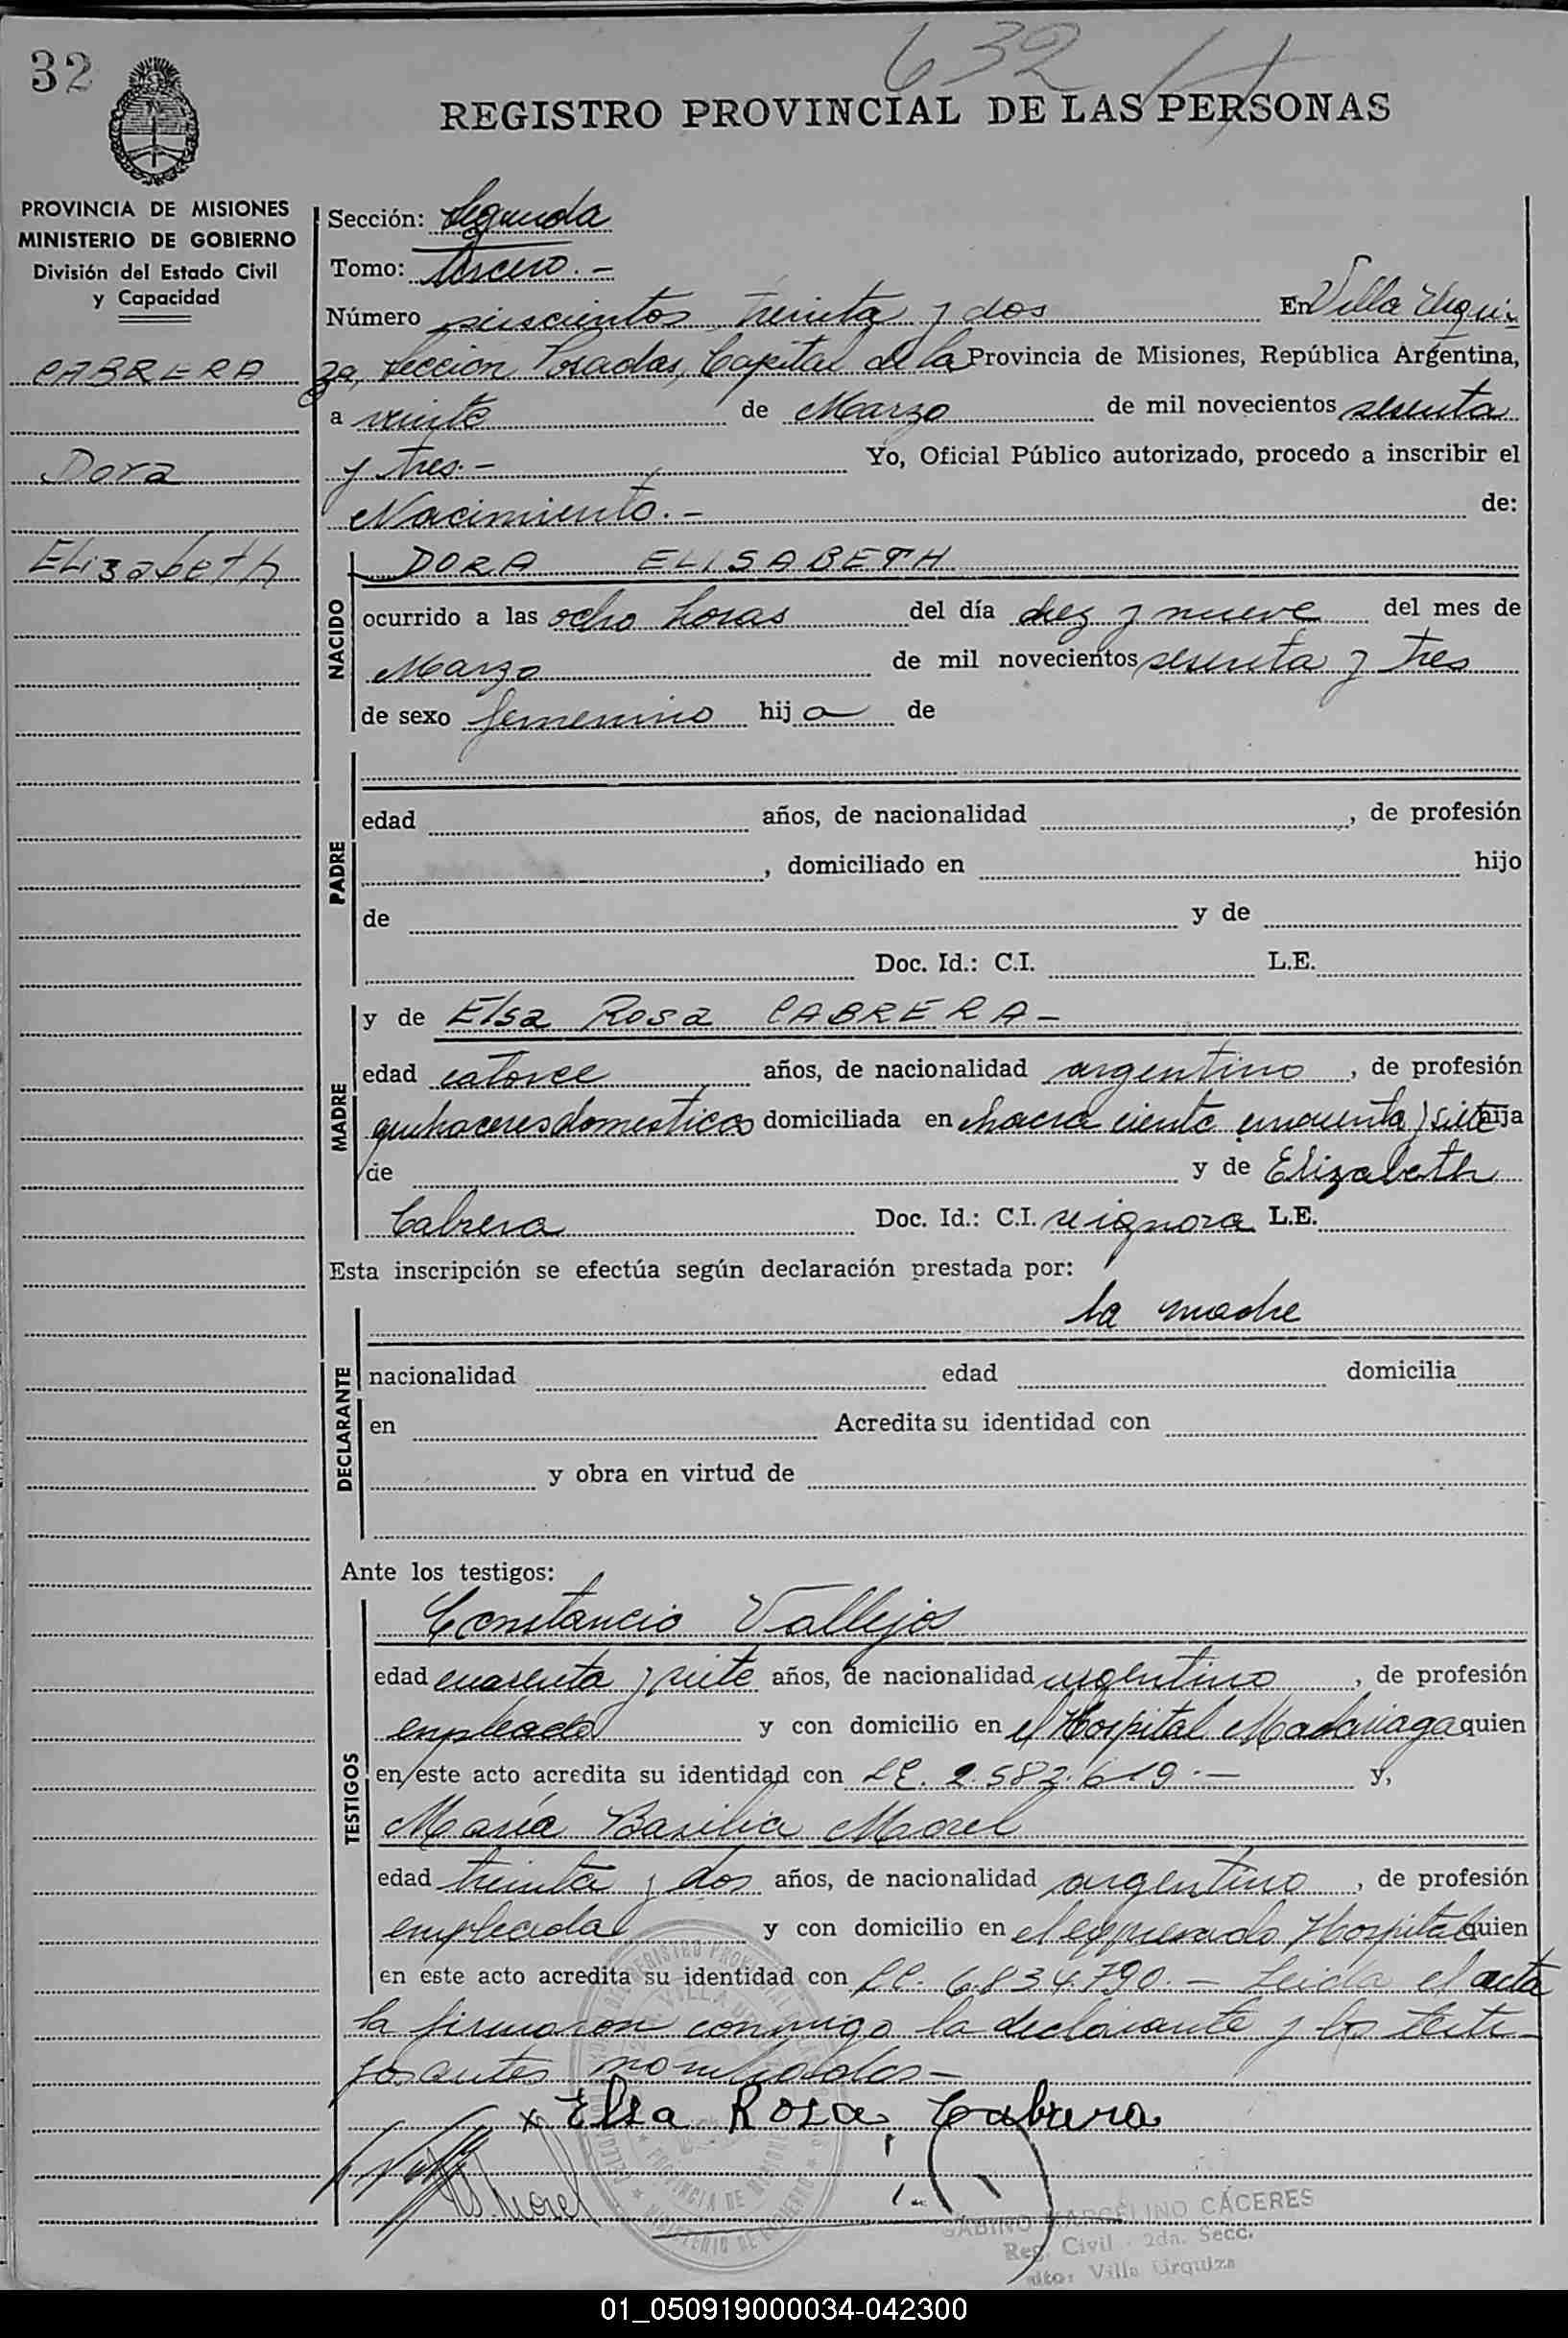 632
32
REGISTRO PROVINCIAL DE LAS PERSONAS
PROVINCIA DE MISIONES
MINISTERIO DE GOBIERNO
División del Estado Civil
y Capacidad
CABRERA
Dora
Elizabeth
Sección: Segunda
Tomo: tercero.-
Número seiscientos treinta y dos En Villa Urqui-
za, sección Posadas, Capital de la Provincia de Misiones, República Argentina,
a veinte de Marzo de mil novecientos sesenta
y tres.- Yo, Oficial Público autorizado, procedo a inscribir el
Nacimiento.- de:
NACIDO
DORA ELISABETH
ocurrido a las ocho horas del día diez y nueve del mes de
Marzo de mil novecientos sesenta y tres
de sexo femenino hija de
PADRE
edad años, de nacionalidad , de profesión
, domiciliado en hijo
de y de
Doc. Id.: C.I. L.E.
MADRE
y de Elsa Rosa CABRERA-
edad catorce años, de nacionalidad argentino, de profesión
quehaceres domesticos domiciliada en chacra ciento cincuenta y siete hija
de y de Elizabeth
Cabrera Doc. Id.: C.I. se ignora L.E.
Esta inscripción se efectúa según declaración prestada por:
DECLARANTE
la madre
nacionalidad edad domicilia
en Acredita su identidad con
y obra en virtud de
Ante los testigos:
TESTIGOS
Constancio Vallejos
edad cuarenta y siete años, de nacionalidad argentino, de profesión
empleado y con domicilio en el Hospital Madariaga quien
en este acto acredita su identidad con LE. 2.582.619.- y,
María Basilia Morel
edad treinta y dos años, de nacionalidad argentino, de profesión
empleada y con domicilio en el expresado Hospital quien
en este acto acredita su identidad con LC. 6.834.790.- Leída el acta
la firmaron conmigo la declarante y los testi-
gos antes nombrados-
x Elsa Rosa Cabrera
B. Morel
SABINO MARCELINO CÁCERES
Reg. Civil - 2da. Secc.
dto: Villa Urquiza
01_050919000034-042300